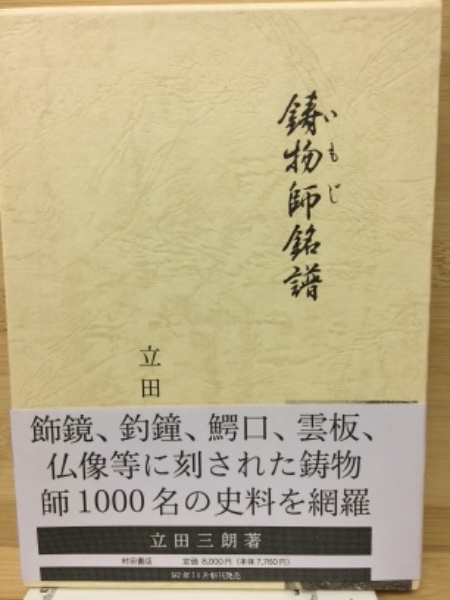 鋳物師銘譜
いもじ
立田
飾鏡、釣鐘、鰐口、雲板、
仏像等に刻された鋳物
師1000名の史料を網羅
立田三朗著
村田書店 定価 8,000円(本体7,760円)